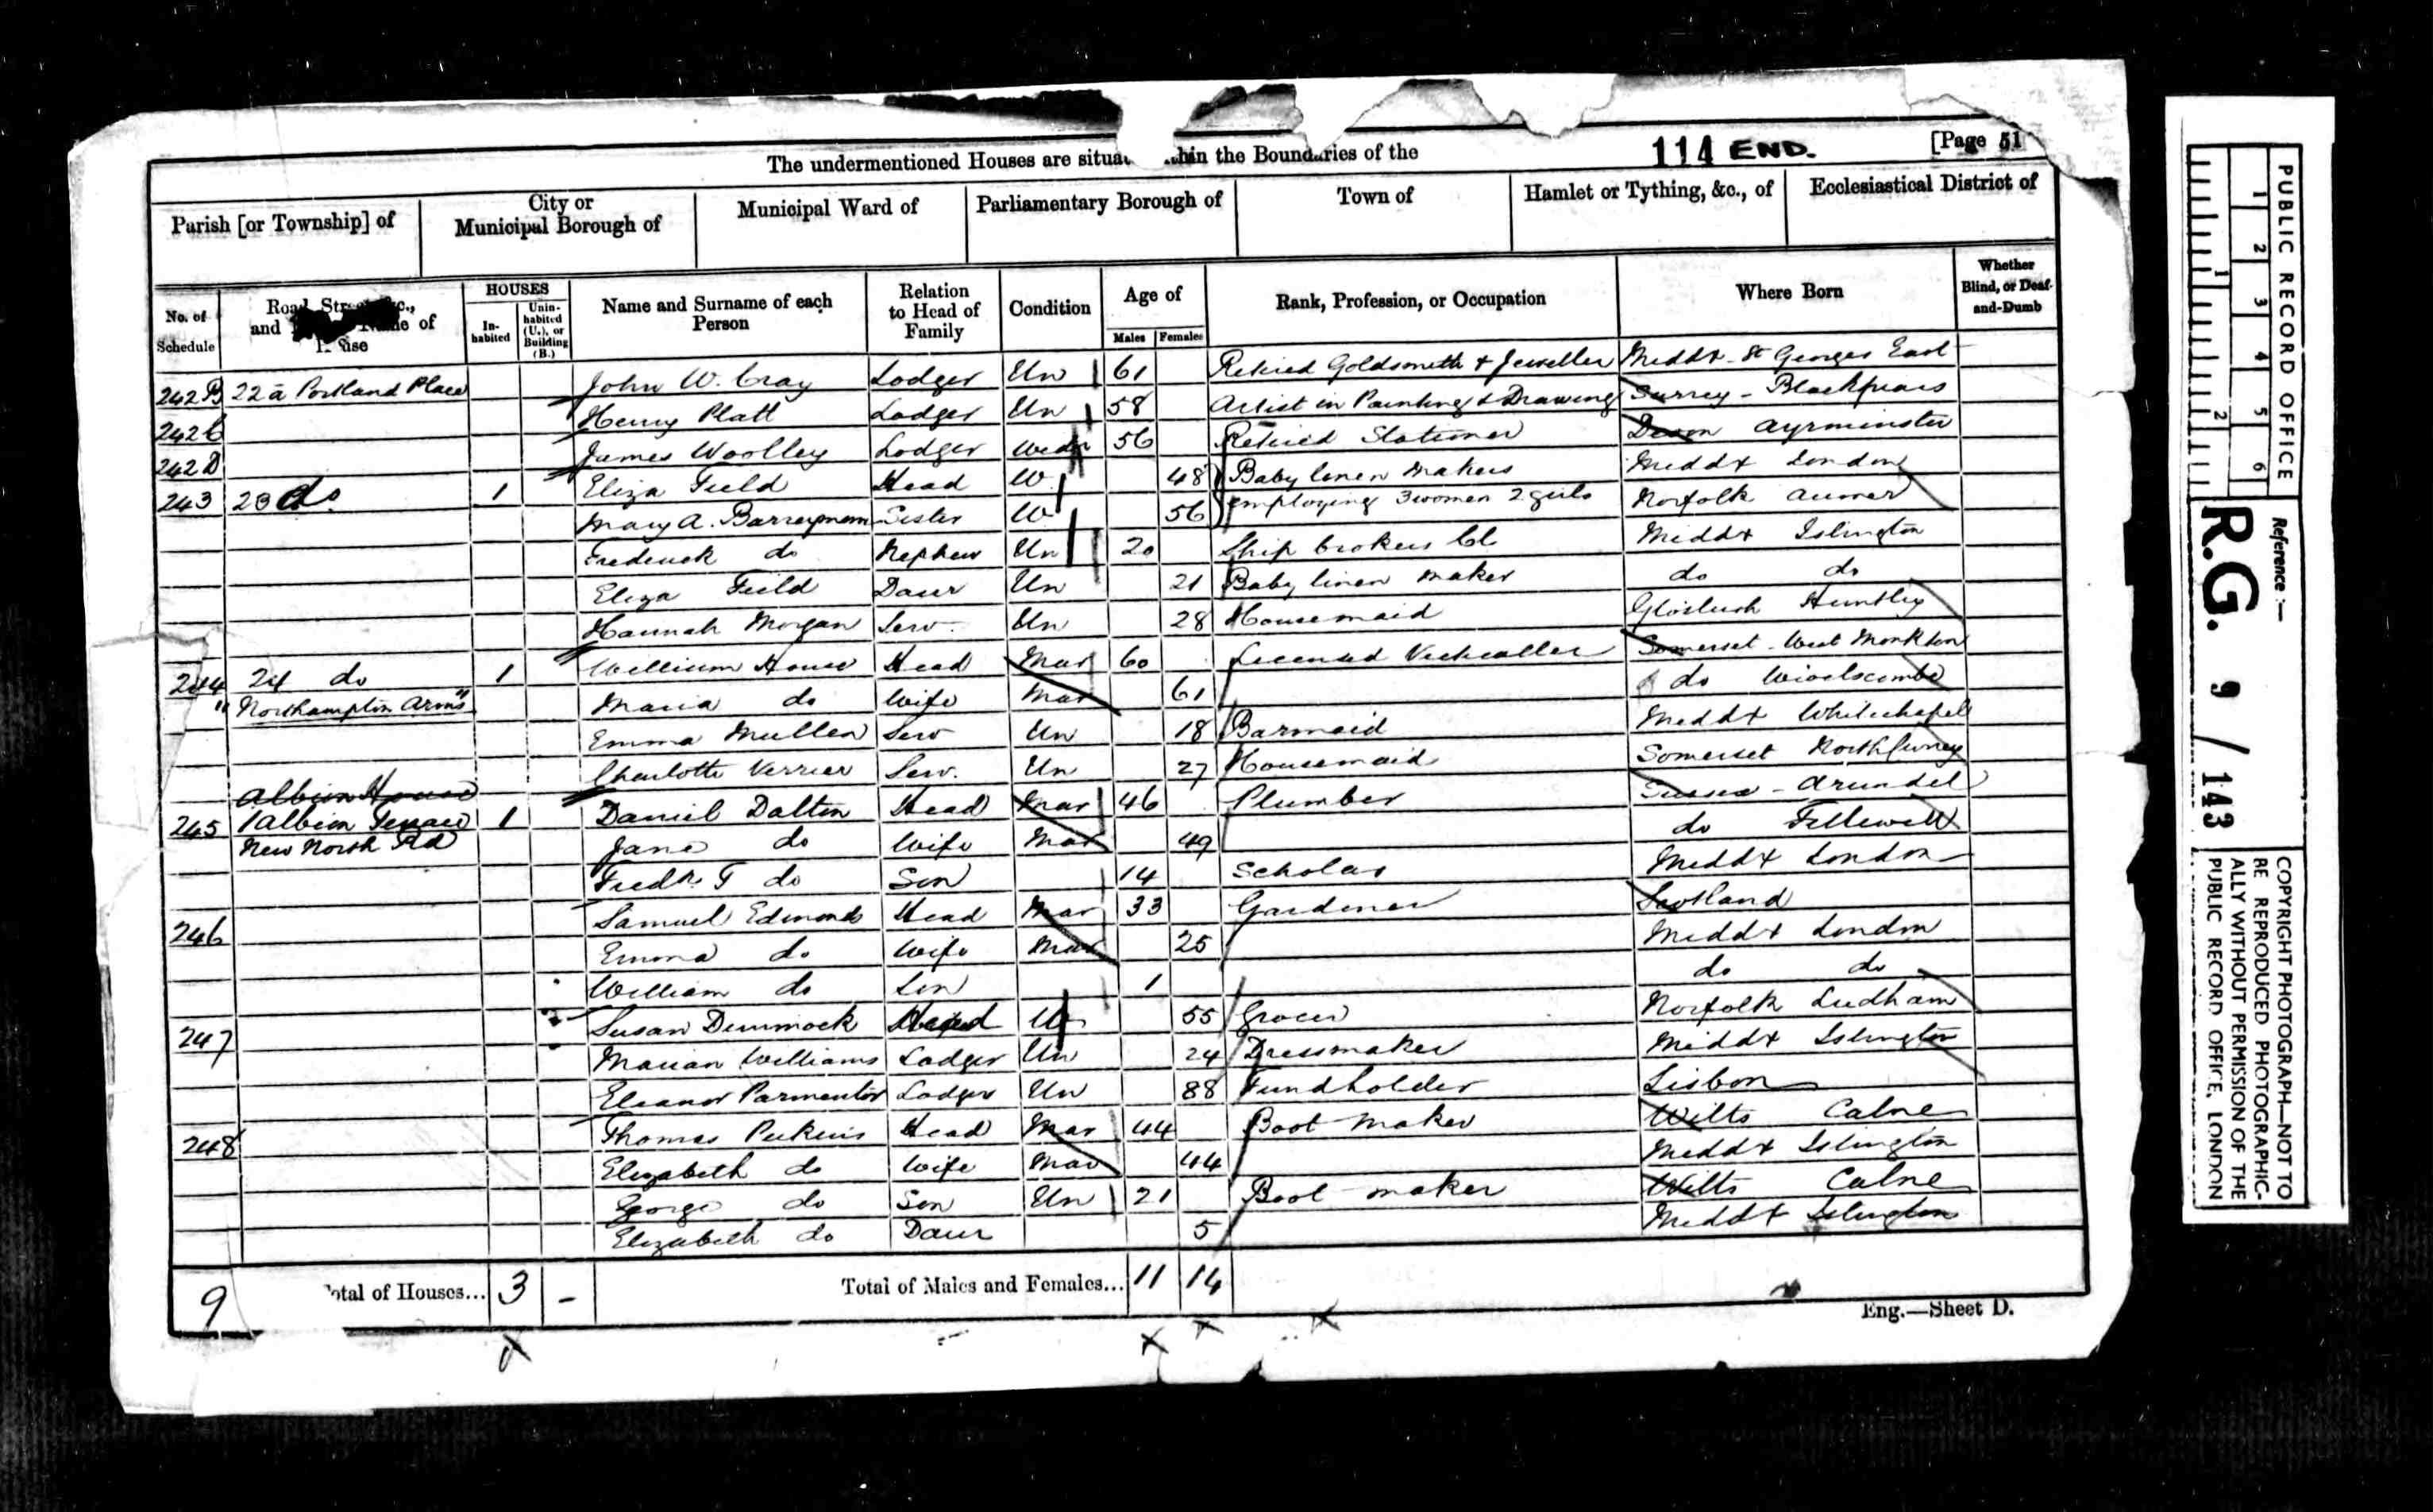 The undermentioned Houses are situa hin the Boundaries of the 114 END. [Page 51
Parish [or Township] of City or Municipal Borough of Municipal Ward of Parliamentary Borough of Town of Hamlet or Tything, &c., of Ecclesiastical District of
No. of Schedule Road, Street, &c., and Name of House HOUSES Inhabited Uninhabited (U.), or Building (B.) Name and Surname of each Person Relation to Head of Family Condition Age of Males Females Rank, Profession, or Occupation Where Born Whether Blind, or Deaf-and-Dumb
242B 22a Portland Place John W. Cray Lodger Un 61 Retired Goldsmith & Jeweller Middx St Georges East
242C Henry Platt Lodger Un 58 Artist in Painting & Drawing Surrey - Blackfriars
242D James Woolley Lodger Widr 56 Retired Stationer Devon Axminster
243 23 do 1 Eliza Field Head W 48 Baby linen Makers Middx London
Mary A. Sister W 56 employing 3 women 2 girls Norfolk
Frederick do Nephew Un 20 Ship brokers Cl Middx Islington
Eliza Field Daur Un 21 Baby linen Maker do do
Hannah Morgan Serv. Un 28 Housemaid Huntley
244 24 do 1 William House Head Mar 60 Licensed Victualler Somerset - West Monkton
"Northampton Arms" Maria do Wife Mar 61 do Wivelscombe
Emma Mullen Serv Un 18 Barmaid Middx Whitechapel
Charlotte Verrier Serv. Un 27 Housemaid Somerset North Curry
Albion House
245 1 Albion Terrace 1 Daniel Dalton Head Mar 46 Plumber Sussex - Arundel
New North Rd Jane do Wife Mar 49 do
Fredk. T do Son 14 Scholar Middx London
246 Samuel Edmonds Head Mar 33 Gardener Scotland
Emma do Wife Mar 25 Middx London
William do Son 1 do do
247 Susan Dimmock Head W 55 Grocer Norfolk Ludham
Marian Williams Lodger Un 24 Dressmaker Middx Islington
Eleanor Parmentor Lodger Un 88 Fundholder Lisbon
248 Thomas Perkins Head Mar 44 Boot maker Wilts Calne
Elizabeth do Wife Mar 44 Middx Islington
George do Son Un 21 Boot-maker Wilts Calne
Elizabeth do Daur 5 Middx Islington
9 Total of Houses... 3 - Total of Males and Females... 11 14
Eng.—Sheet D.
PUBLIC RECORD OFFICE
1 2 3 4 5 6
1 2
Reference :—
R.G. 9 / 143
COPYRIGHT PHOTOGRAPH—NOT TO
BE REPRODUCED PHOTOGRAPHIC-
ALLY WITHOUT PERMISSION OF THE
PUBLIC RECORD OFFICE, LONDON